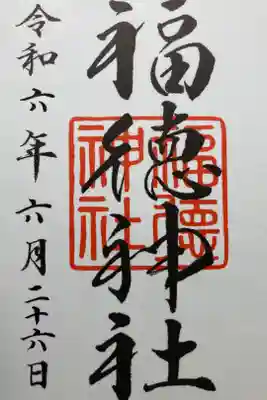 福徳神社
福德神社
令和六年六月二十六日